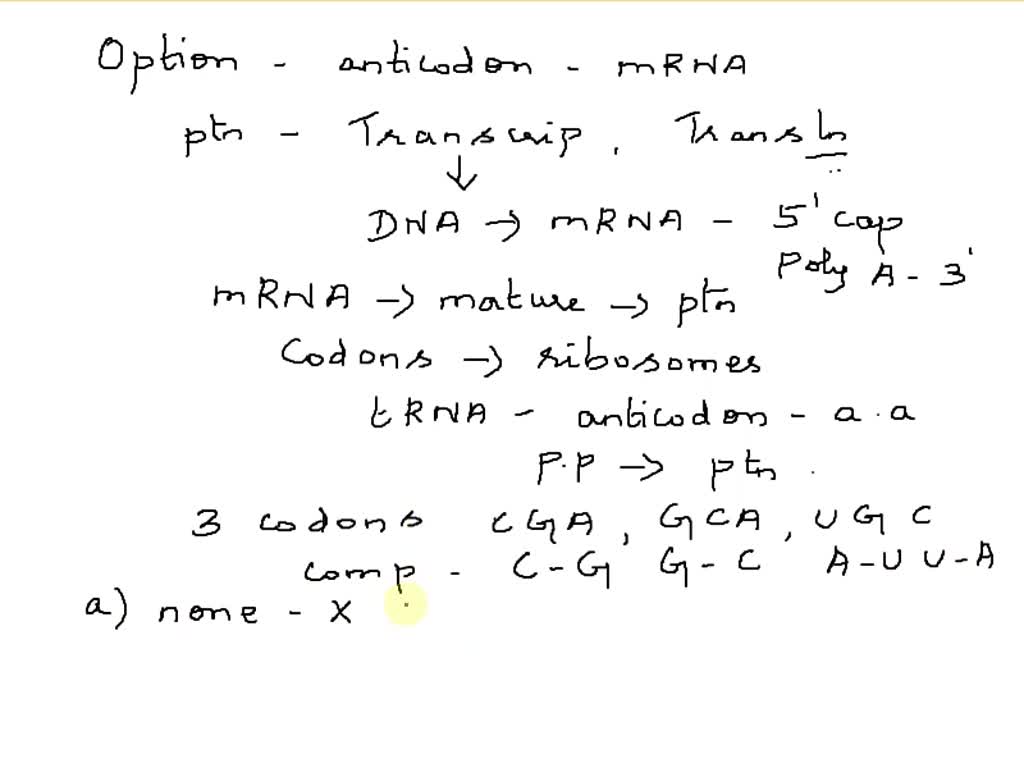 Option - anticodon - mRNA
ptn - Transcrip, Transln
↓
DNA → mRNA - 5' cap
Poly A - 3'
mRNA → mature → ptn
Codons → ribosomes
tRNA - anticodon - a.a
P.P → ptn.
3 codons CGA, GCA, UGC
comp - C-G G-C A-U U-A
a) none - X